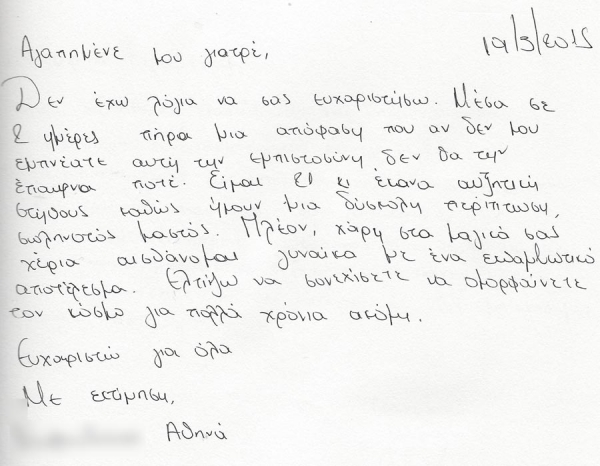 19/3/2015
Αγαπημένε μου γιατρέ,
Δεν έχω λόγια να σας ευχαριστήσω. Μέσα σε
2 ημέρες πήρα μια απόφαση που αν δεν μου
εμπνέατε αυτή την εμπιστοσύνη δεν θα την
έπαιρνα ποτέ. Είμαι 21 κ έκανα αυξητική
στήθους καθώς ήμουν μια δύσκολη περίπτωση,
σωληνωτός μαστός. Πλέον, χάρη στα μαγικά σας
χέρια αισθάνομαι γυναίκα με ένα εκθαμβωτικό
αποτέλεσμα. Ελπίζω να συνεχίσετε να ομορφαίνετε
τον κόσμο για πολλά χρόνια ακόμη.
Ευχαριστώ για όλα
Με εκτίμηση,
Αθηνά